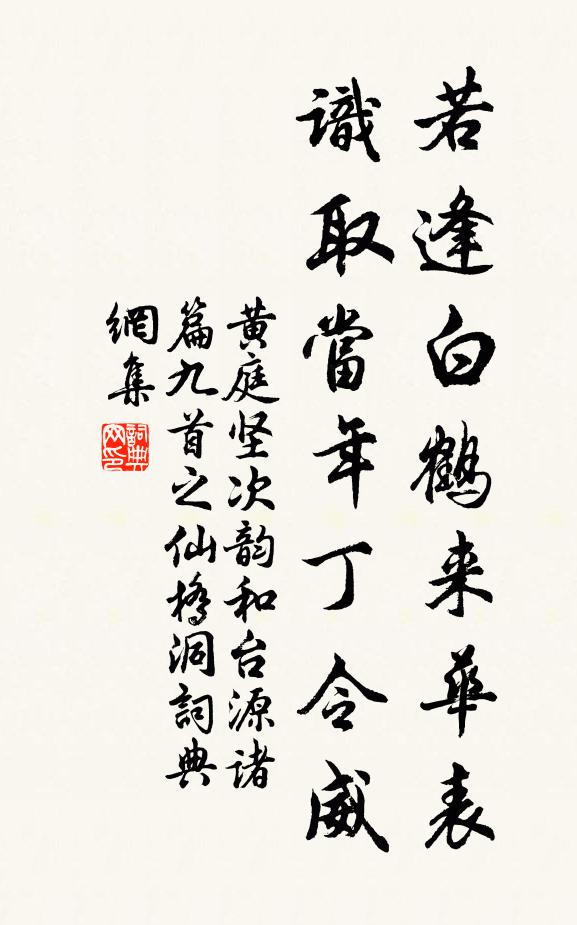 若逢白鹤来華表
識取當年丁令威
黄庭坚次韵和台源诸
篇九首之仙橋洞詞典
網集
詞典
网印